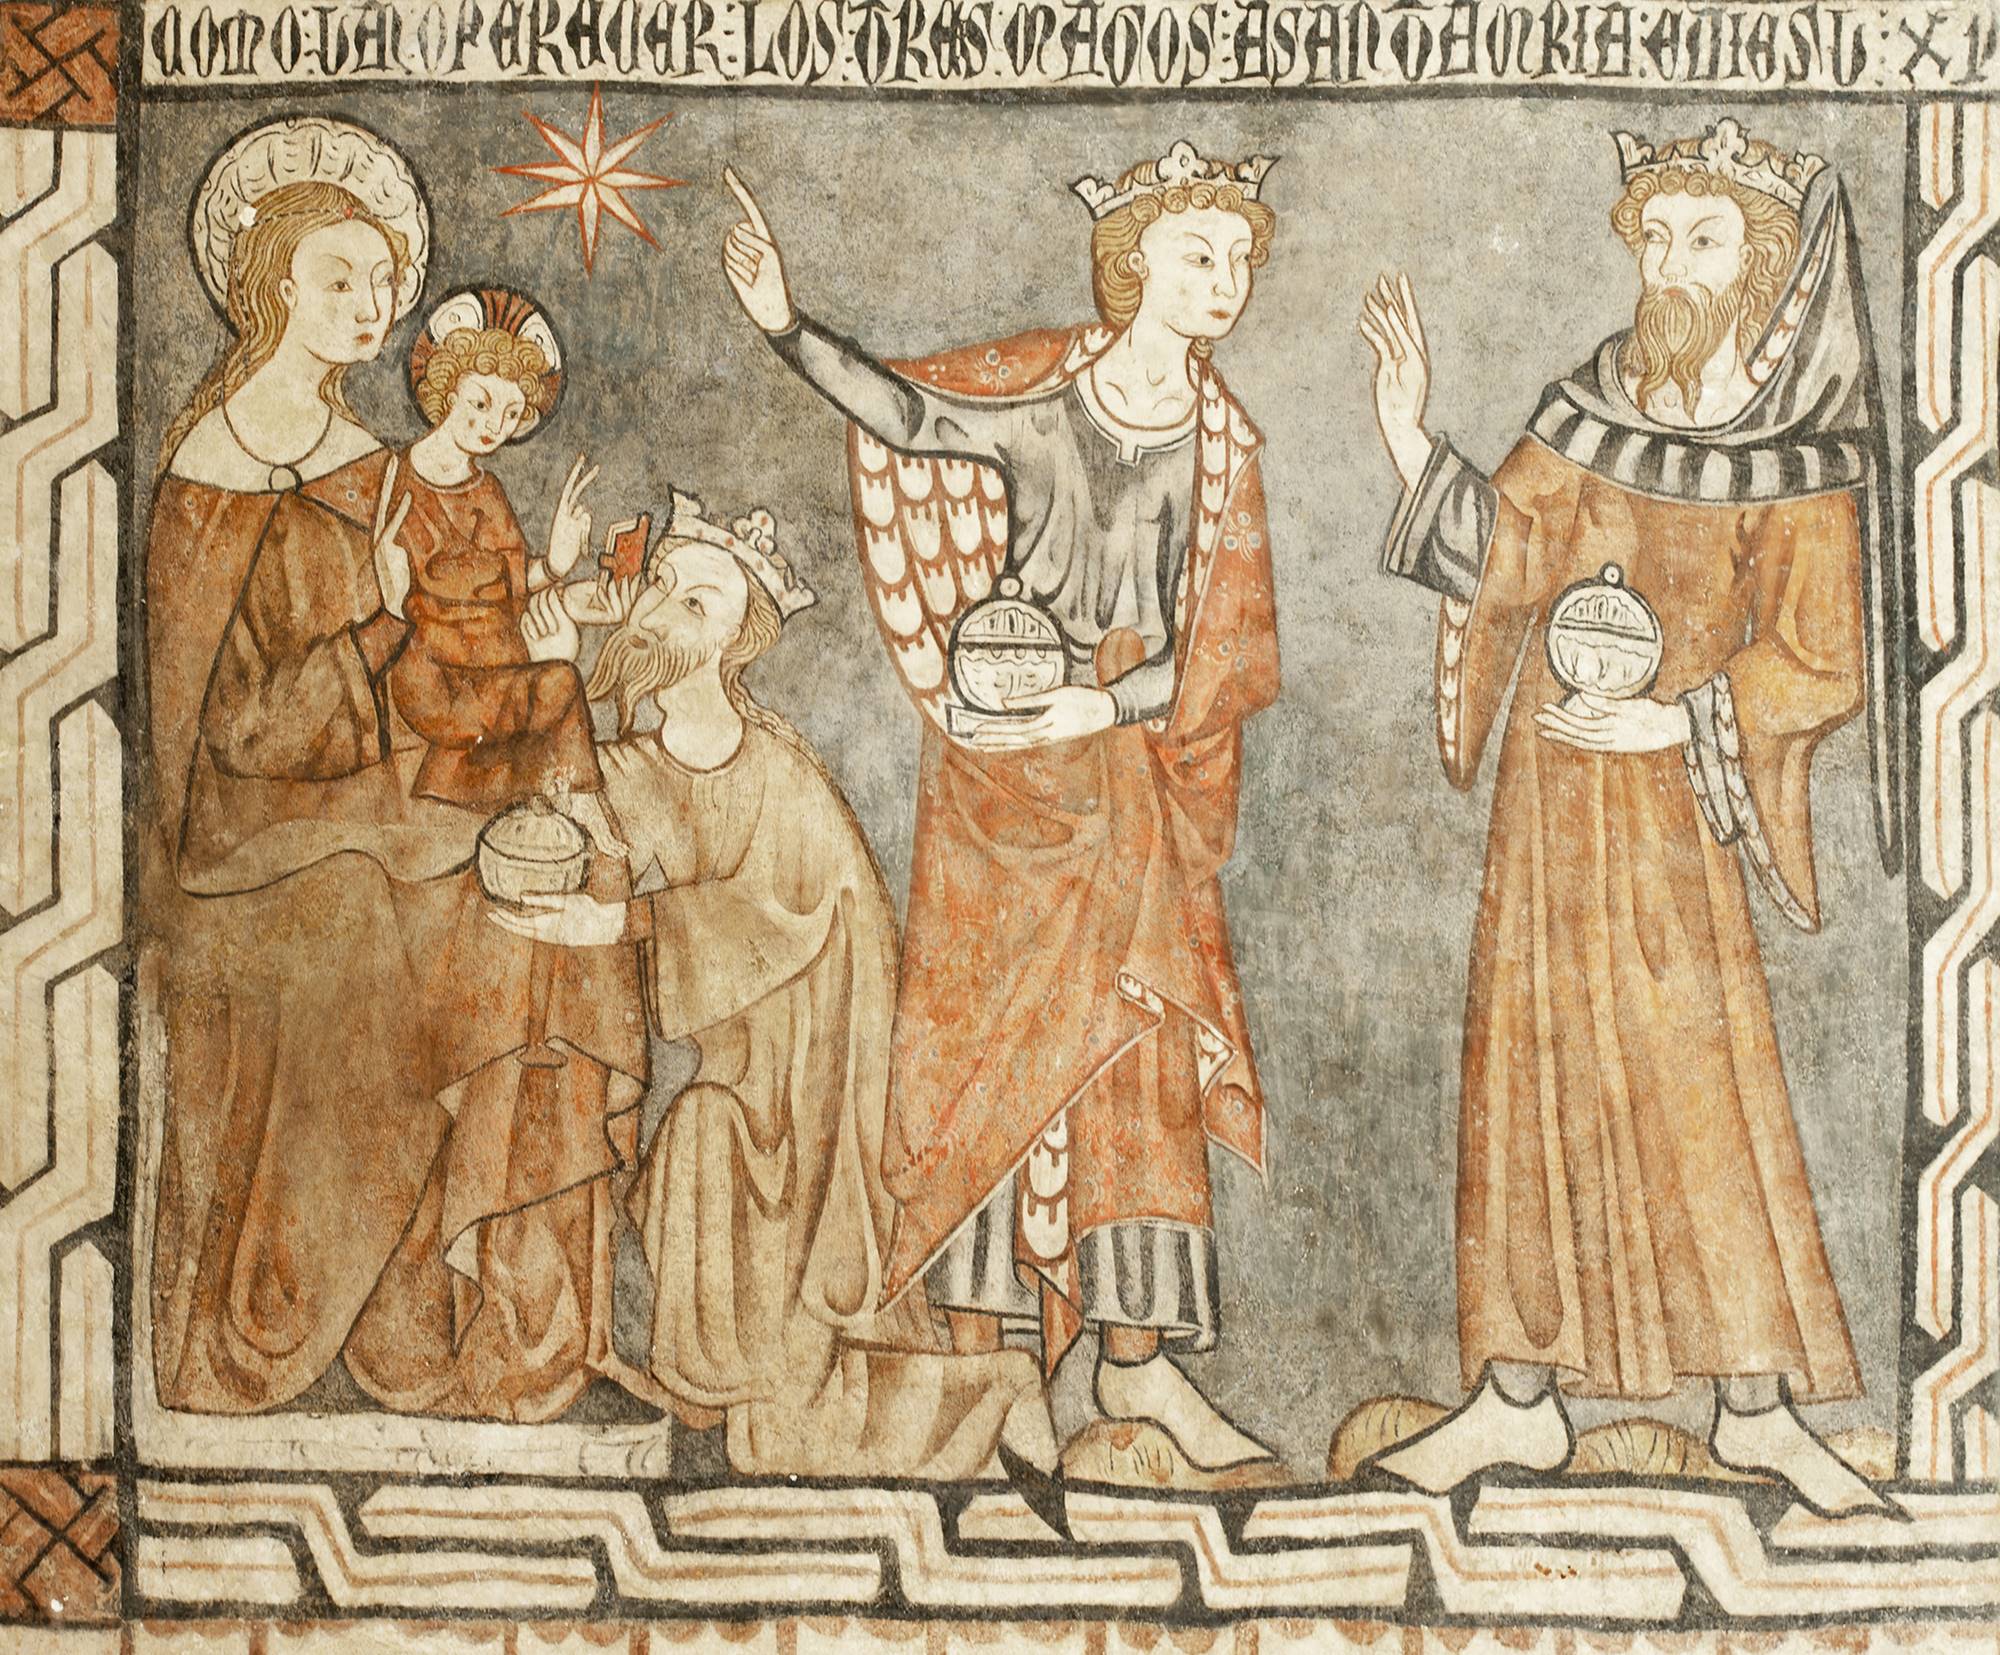 COMO:VAN OFERECER:LOS:TRES:MAGOS:ASANTAMRIA:EDIESU:XP